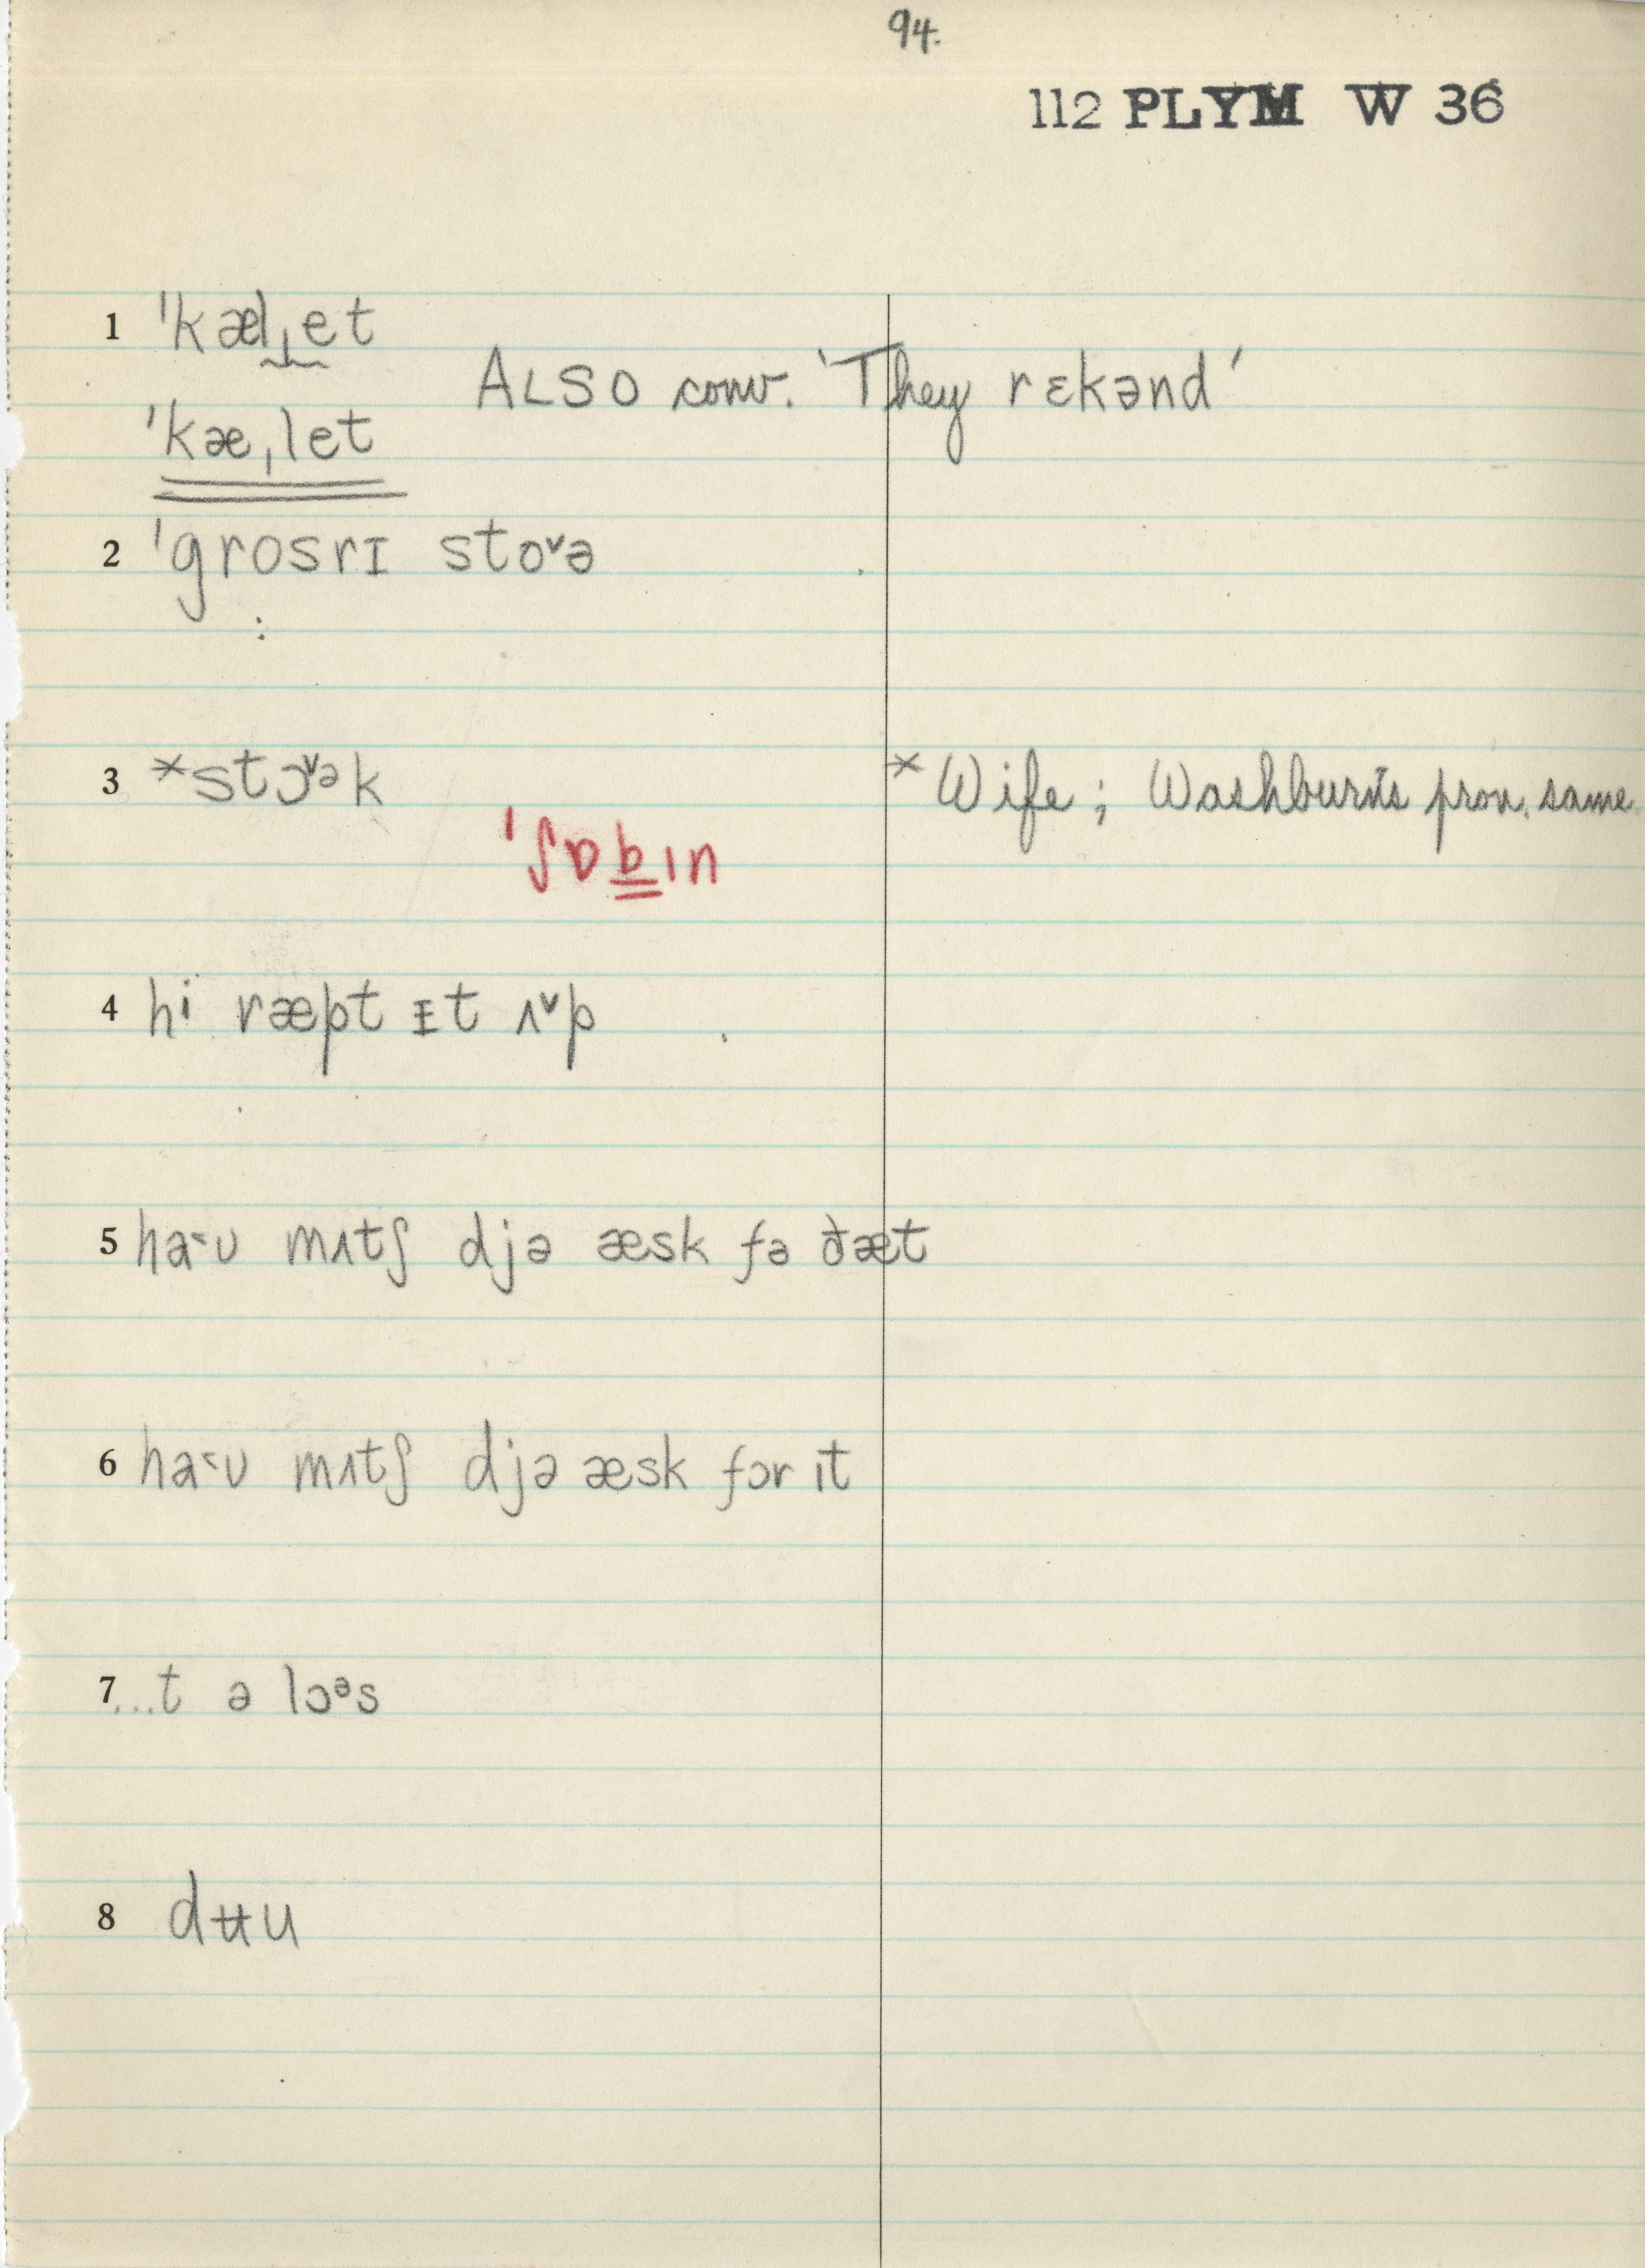 94.
112 PLYM W 36
1 ˈkælˌet
ALSO conv. 'They rɛkənd'
ˈkæˌlet
2 ˈɡrosrɪ stoᵛə
3 *stɔᵛᵊk
* Wife; Washburn's pron. same
ˈʃɒbɪn
4 hi ræpt ᵻt ʌᵛp
5 ha˂ʊ mʌtʃ djə æsk fə ðæt
6 ha˂ʊ mʌtʃ djə æsk fɔr ɪt
7 ...t ə lɔᵊs
8 dʉu